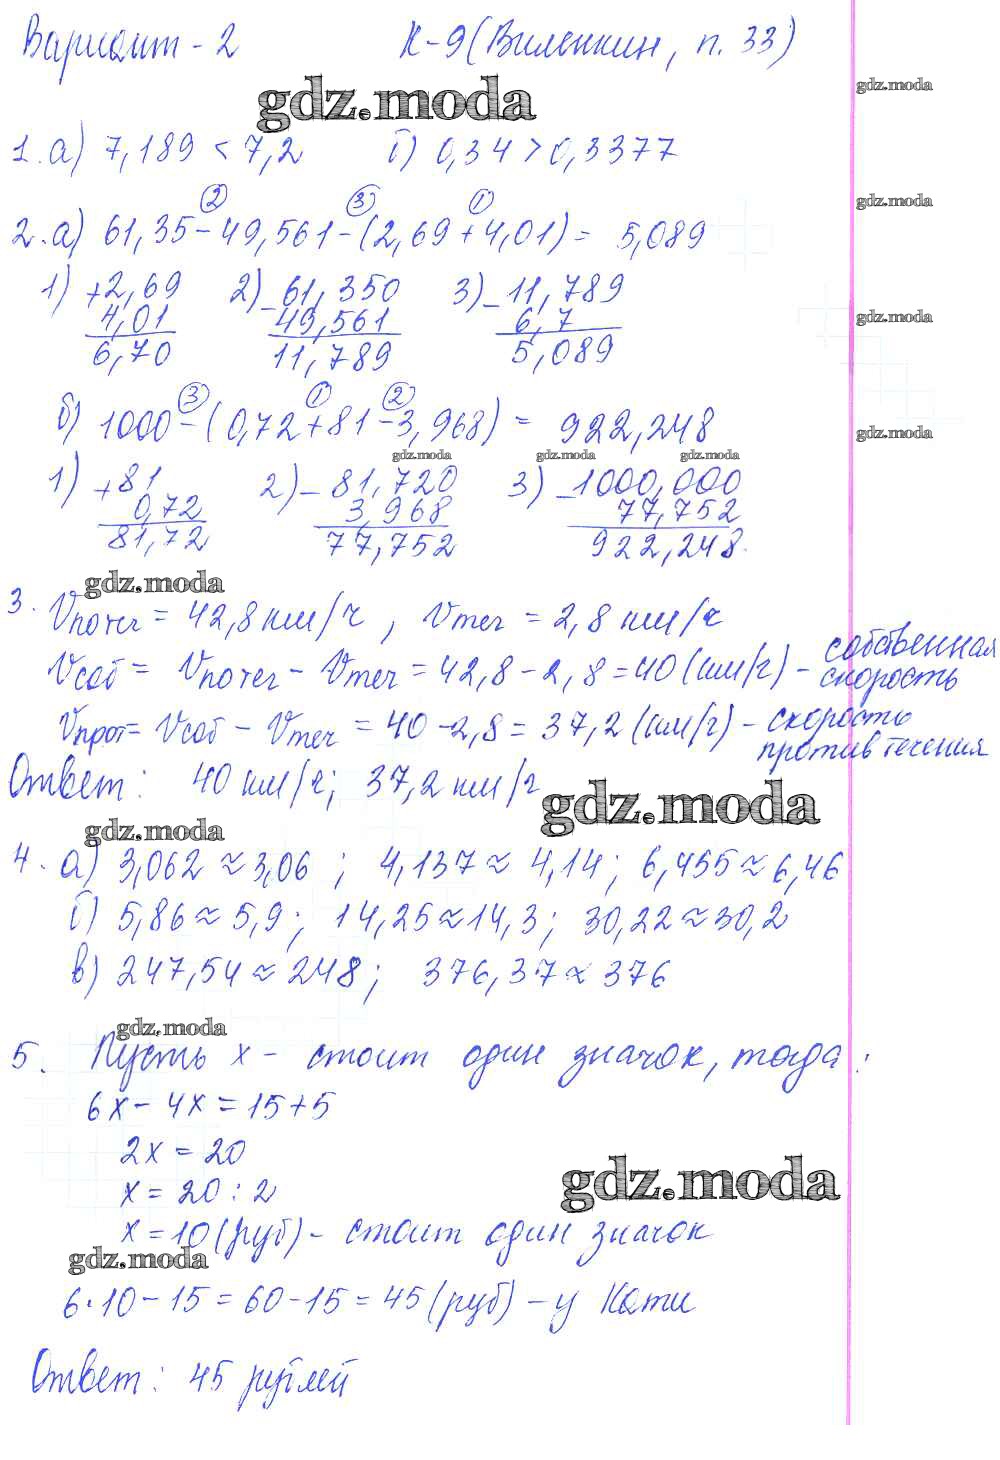 Вариант - 2 К-9 (Виленкин, п. 33)
gdz.moda
gdz.moda
1. а) 7,189 < 7,2 б) 0,34 > 0,3377
gdz.moda
2 3 1
2. а) 61,35 - 49,561 - (2,69 + 4,01) = 5,089
1) +2,69 2) -61,350 3) -11,789
gdz.moda
4,01 49,561 6,7
6,70 11,789 5,089
3 1 2
б) 1000 - (0,72 + 81 - 3,968) = 922,248
gdz.moda
gdz.moda gdz.moda gdz.moda
1) +81 2) -81,720 3) -1000,000
0,72 3,968 77,752
81,72 77,752 922,248
gdz.moda
3. Vпотеч = 42,8 км/ч, Vтеч = 2,8 км/ч
Vсоб = Vпотеч - Vтеч = 42,8 - 2,8 = 40 (км/ч) - собственная
скорость
Vпрот = Vсоб - Vтеч = 40 - 2,8 = 37,2 (км/ч) - скорость
против течения
Ответ: 40 км/ч; 37,2 км/ч
gdz.moda
gdz.moda
4. а) 3,062 ≈ 3,06; 4,137 ≈ 4,14; 6,455 ≈ 6,46
б) 5,86 ≈ 5,9; 14,25 ≈ 14,3; 30,22 ≈ 30,2
в) 247,54 ≈ 248; 376,37 ≈ 376
gdz.moda
5. Пусть x - стоит один значок, тогда:
6x - 4x = 15 + 5
2x = 20
x = 20 : 2
gdz.moda
x = 10 (руб) - стоит один значок
gdz.moda
6·10 - 15 = 60 - 15 = 45 (руб) - у Кати
Ответ: 45 рублей